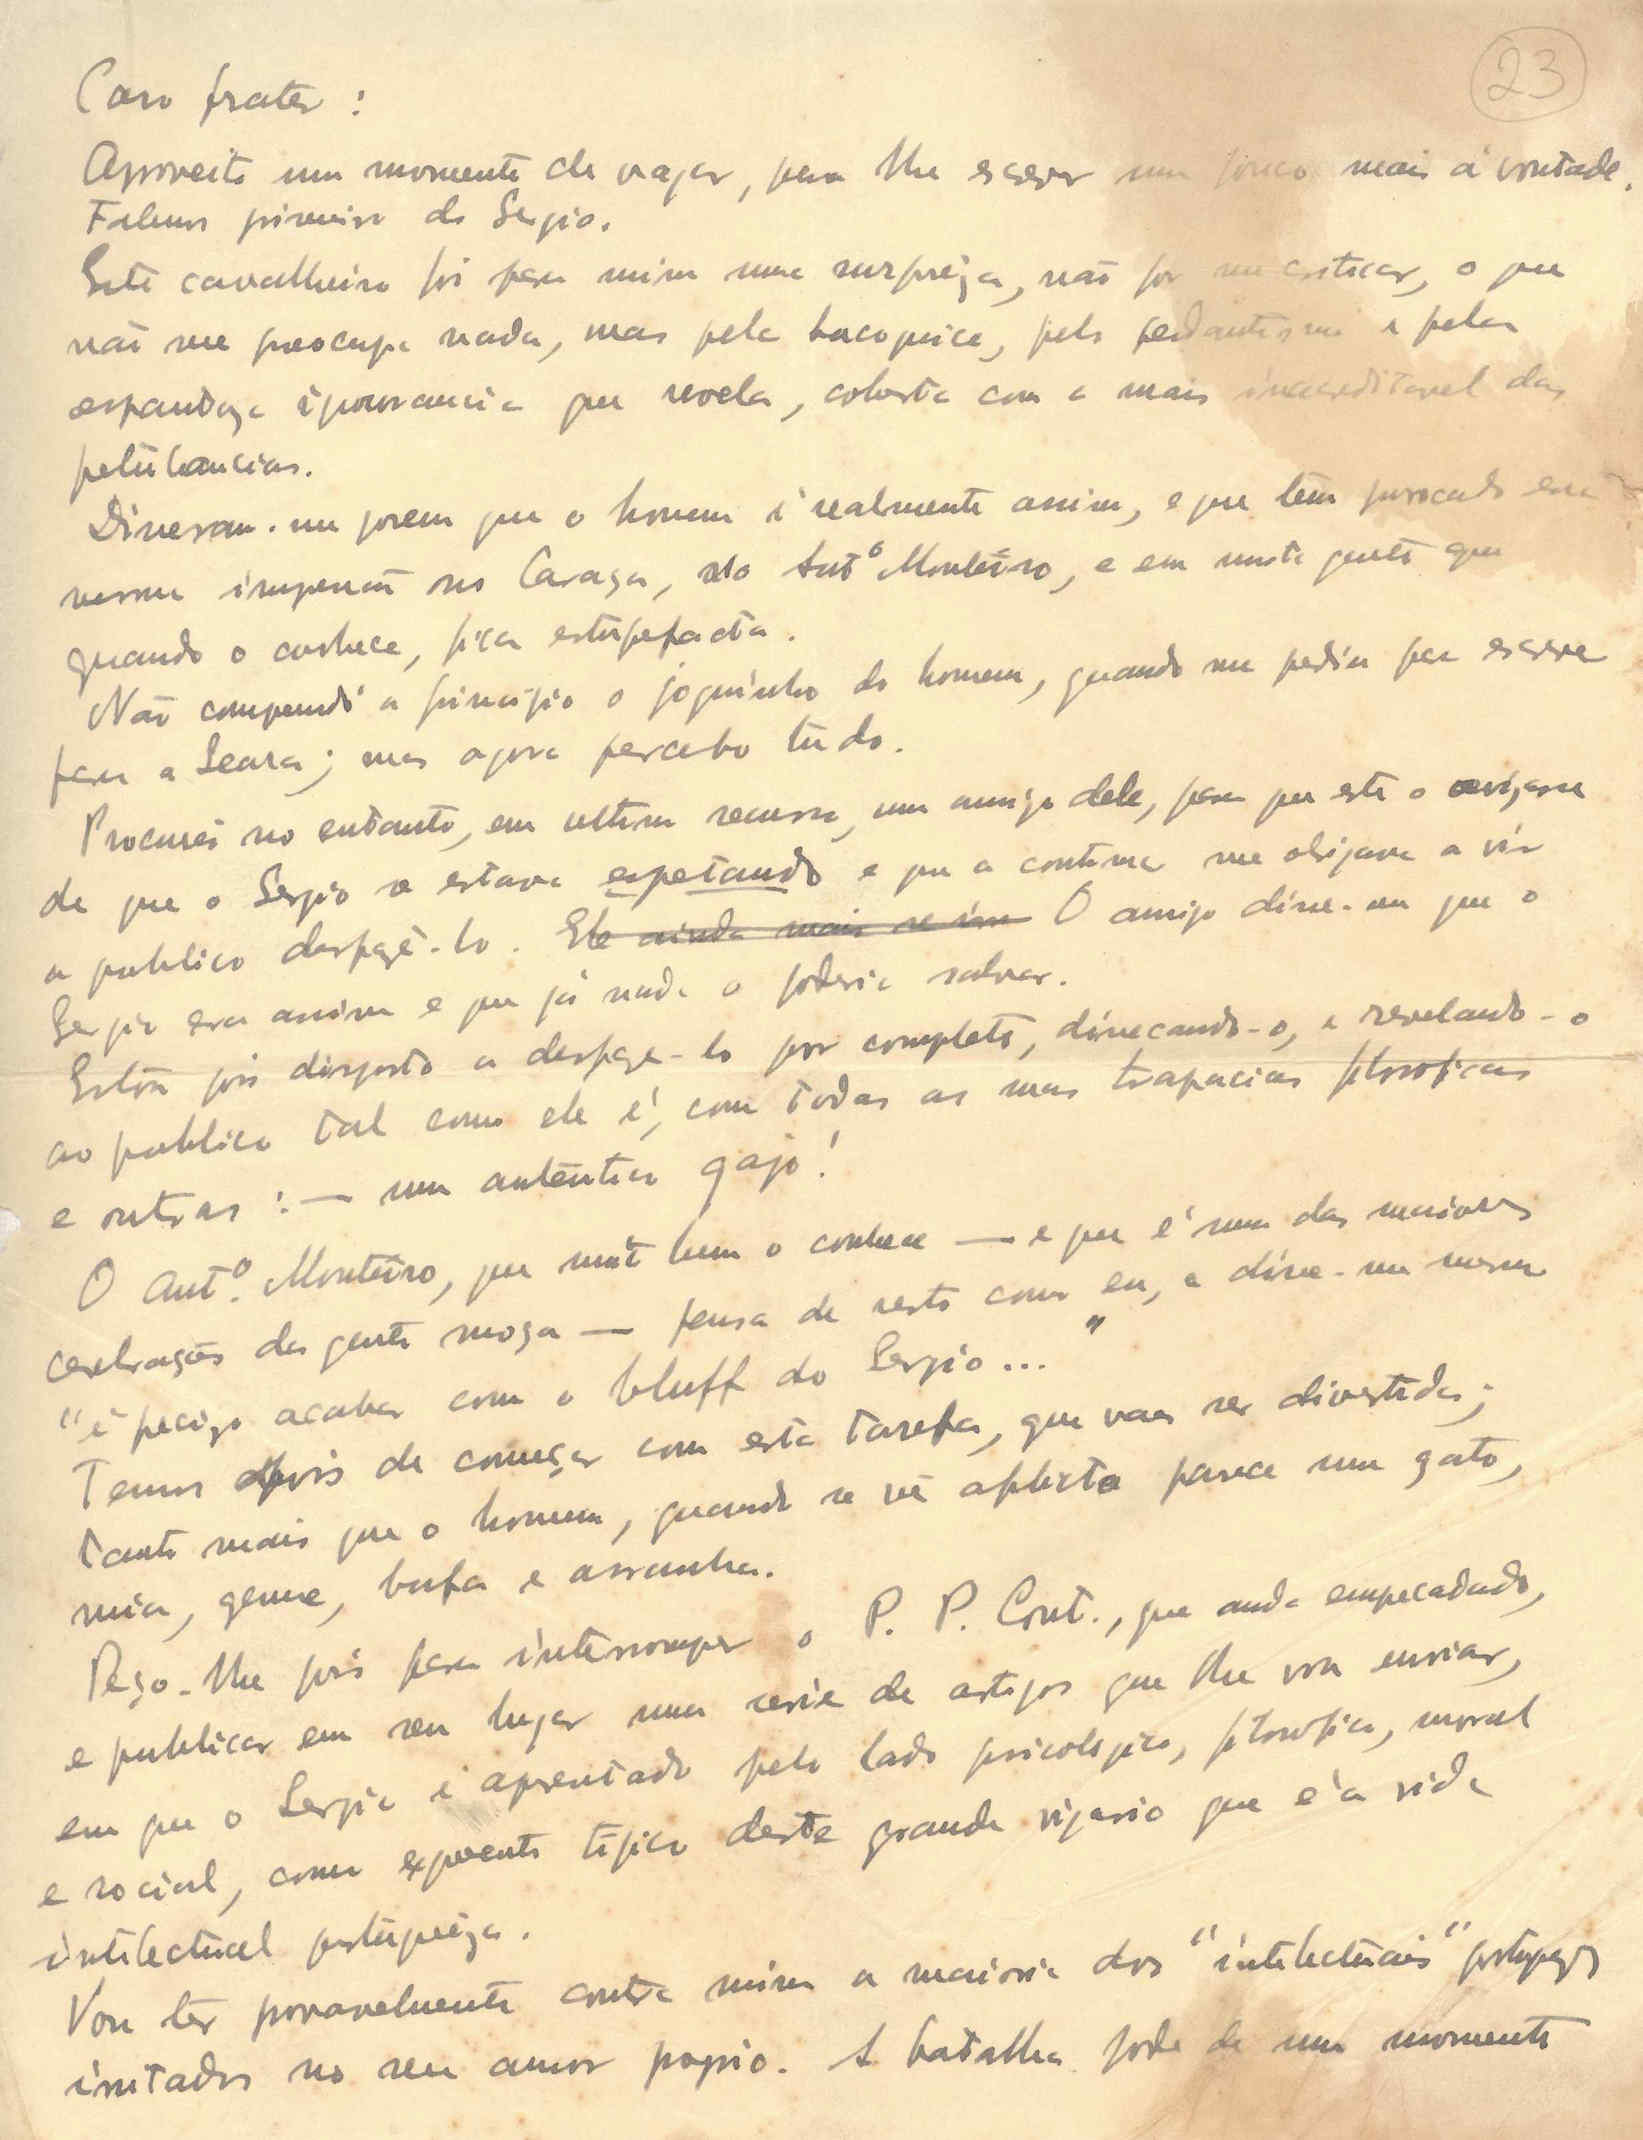 23
Caro frater:
Aproveito um momento de vagar, para lhe escrever um pouco mais á vontade.
Falemos primeiro do Sergio.
Este cavalheiro foi para mim uma surpreza, não por me criticar, o que
não me preocupa nada, mas pela pela pedantismo e pela
espantoza ignorancia que revela, coberta com a mais inacreditavel das
petulancias.
Disseram-me porem que o homem é realmente assim, e que tem provocado essa
mesma impressão no Caraça, no Antº Monteiro, e em muita gente que
quando o conhece, fica estupefacta.
Não comprendi a principio o joguinho do homem, quando me pedia para escrever
para a Seara; mas agora percebo tudo.
Procurei no entanto, em ultimo recurso, um amigo dele, para que este o avizasse
de que o Sergio se estava espetando e que a continuar me obrigava a vir
a publico desfazê-lo. Ele ainda mais se O amigo disse-me que o
Sergio era assim e que já nada o poderia salvar.
Estou pois disposto a desfaze-lo por completo, dissecando-o, e revelando-o
ao publico tal como ele é, com todas as suas trapacias filosoficas
e outras: — um autêntico gajo!
O Antº. Monteiro, que muito bem o conhece — e que é uma das maiores
cerebrações da gente moça — pensa de resto como eu, e disse-me mesmo
"é precizo acabar com o bluff do Sergio..."
Temos pois de começar com esta tarefa, que vae ser divertida;
tanto mais que o homem, quando se vê aflicto parece um gato,
mia, geme, bufa e arranha.
Peço-lhe pois para interromper o P. P. Cont., que anda empecadado,
e publicar em seu lugar uma serie de artigos que lhe vou enviar,
em que o Sergio é aprentado pelo lado psicologico, filosofico, moral
e social, como expoente tipico deste grande vigario que é a vida
intelectual portugueza.
Vou ter provavelmente contra mim a maioria dos "intelectuais" portuguezes
irritados no seu amor proprio. A batalha pode de um momento